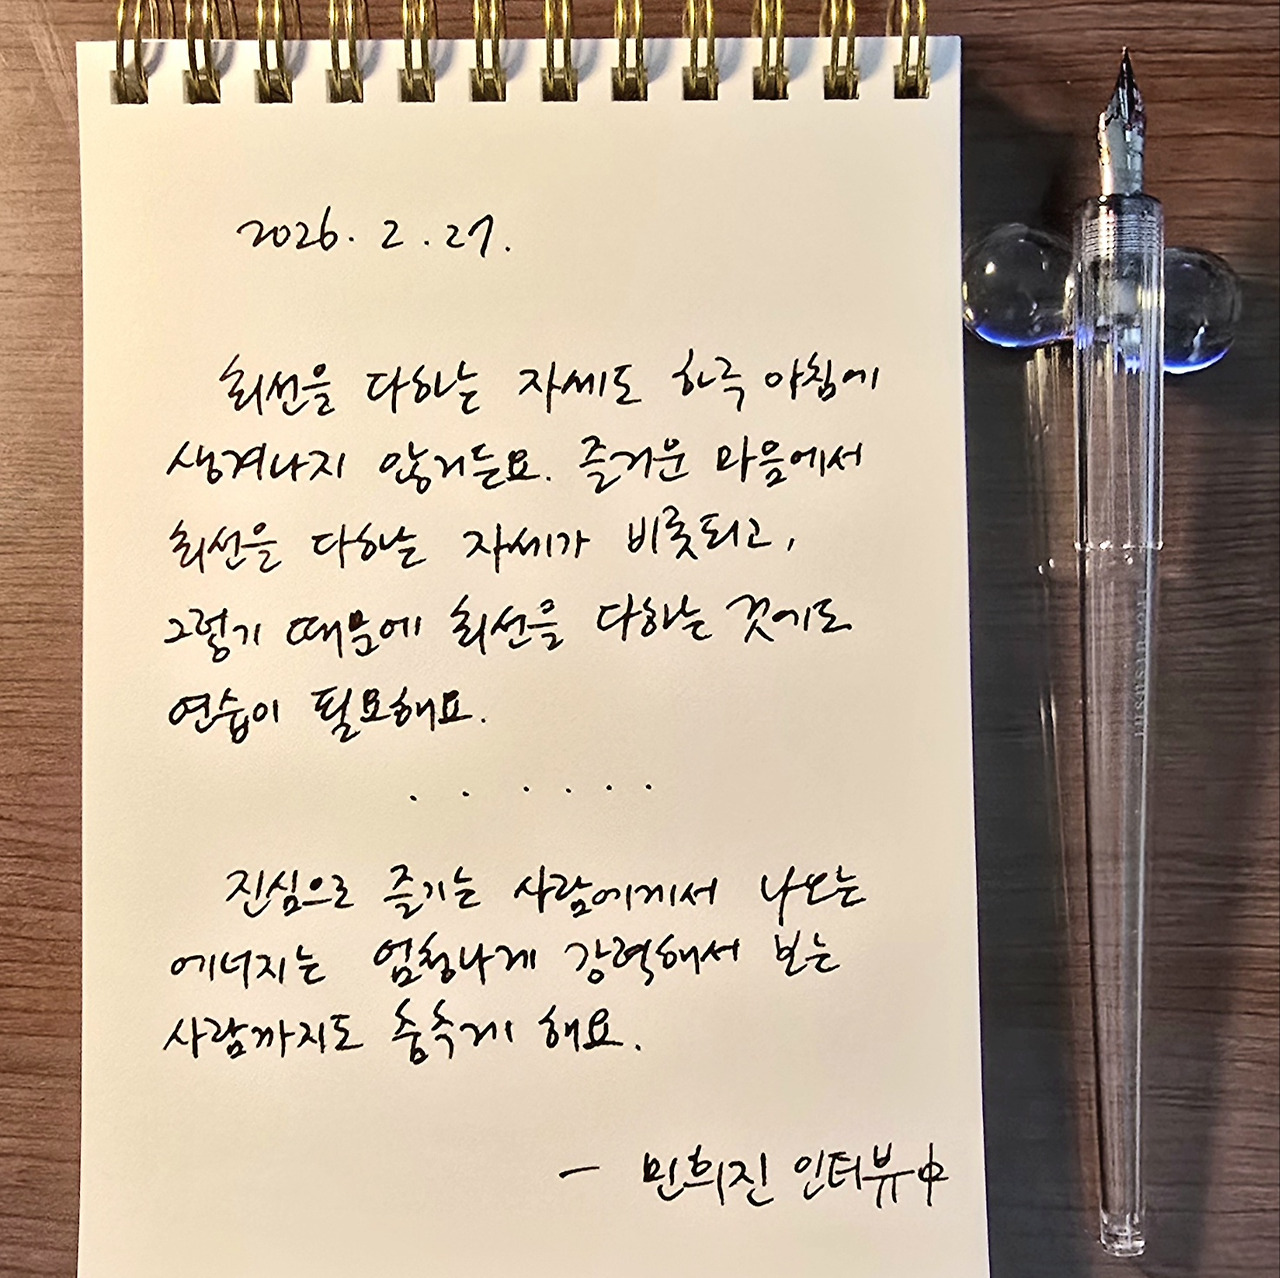 2026. 2. 27.
최선을 다하는 자세도 하루 아침에
생겨나지 않거든요. 즐거운 마음에서
최선을 다하는 자세가 비롯되고,
그렇기 때문에 최선을 다하는 것에도
연습이 필요해요.
. . . . . .
진심으로 즐기는 사람에게서 나오는
에너지는 엄청나게 강력해서 보는
사람까지도 춤추게 해요.
- 민희진 인터뷰中